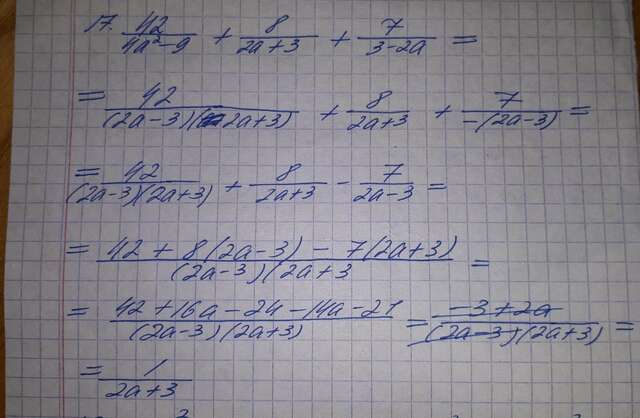 17. 42/(4a²-9) + 8/(2a+3) + 7/(3-2a) =
= 42/((2a-3)(2a+3)) + 8/(2a+3) + 7/(-(2a-3)) =
= 42/((2a-3)(2a+3)) + 8/(2a+3) - 7/(2a-3) =
= (42 + 8(2a-3) - 7(2a+3))/((2a-3)(2a+3) =
= (42 + 16a - 24 - 14a - 21)/((2a-3)(2a+3)) = (-3+2a)/((2a-3)(2a+3)) =
= 1/(2a+3)